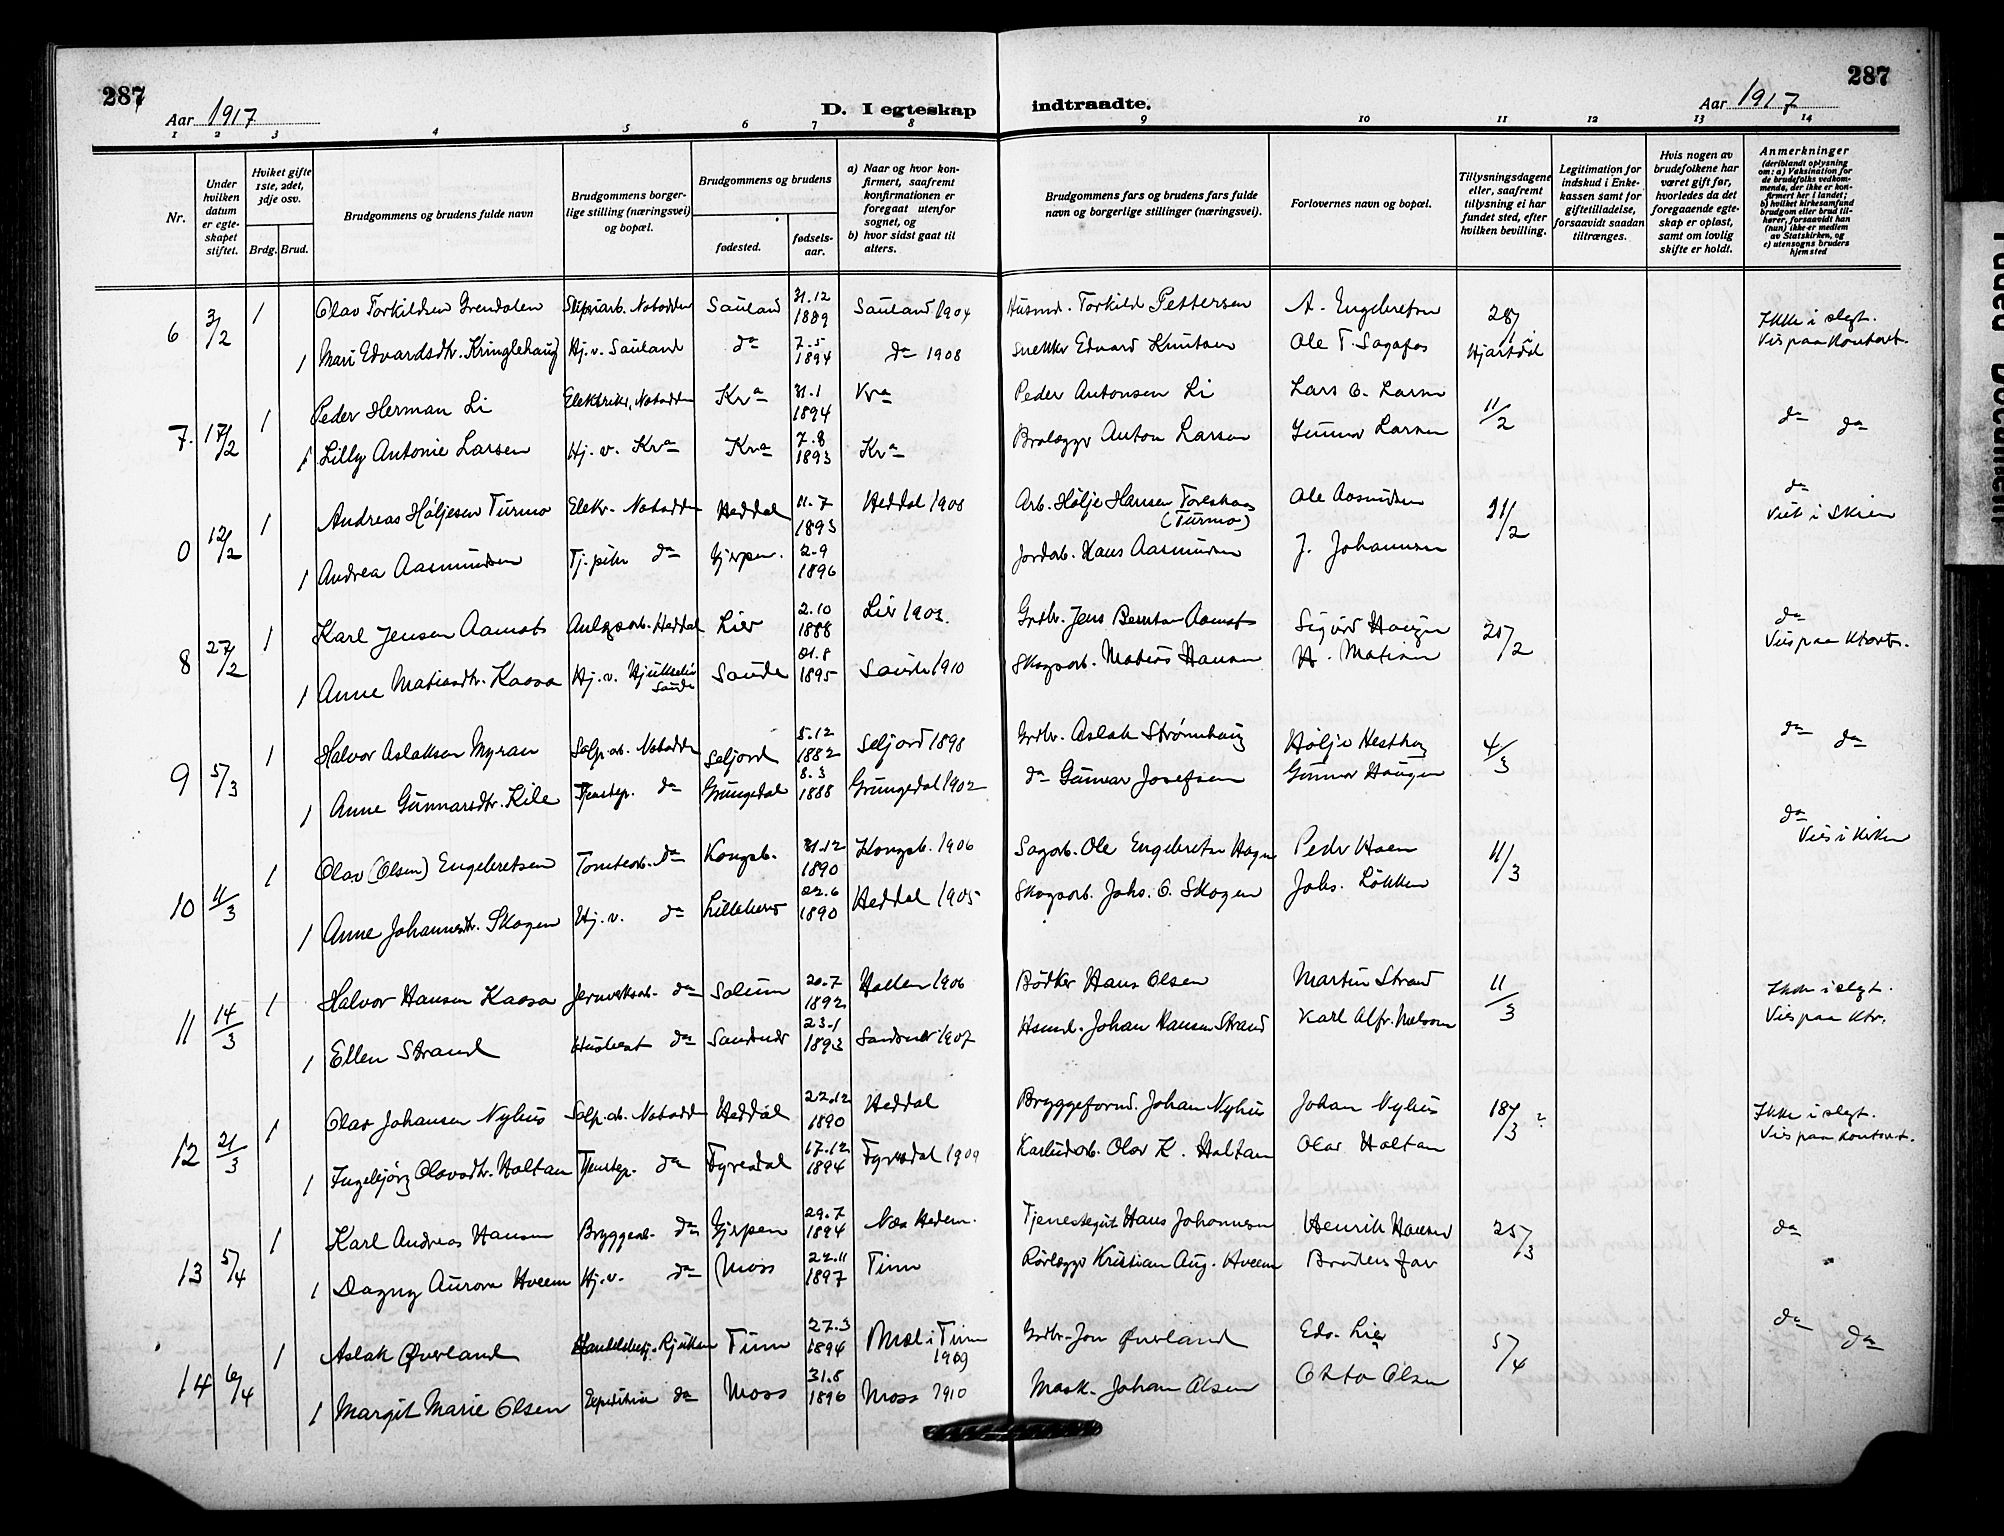 287
Aar 1917
D. I egteskap indtraadte.
Aar 1917
287
1 2 3 4 5 6 7 8 9 10 11 12 13 14
Nr.
Under hvilken datum er egteskapet stiftet.
Hvilket gifte 1ste, 2det, 3dje osv.
Brdg. Brud.
Brudgommens og brudens fulde navn
Brudgommens borgerlige stilling (næringsvei) og bopæl.
Brudgommens og brudens
fødested.
fødselsaar.
a) Naar og hvor konfirmert, saafremt konfirmationen er foregaat utenfor sognet, og
b) hvor sidst gaat til alters.
Brudgommens fars og brudens fars fulde navn og borgerlige stillinger (næringsvei).
Forlovernes navn og bopæl.
Tillysningsdagene eller, saafremt tillysning ei har fundet sted, efter hvilken bevilling.
Legitimation for indskud i Enkekassen samt for giftetilladelse, forsaavidt saadan tiltrænges.
Hvis nogen av brudefolkene har været gift før, hvorledes da det foregaaende egteskap er opløst, samt om lovlig skifte er holdt.
Anmerkninger
(deriblandt oplysning om: a) Vaksination for de brudefolks vedkommende, der ikke er konfirmert her i landet;
b) hvilket kirkesamfund brudgom eller brud tilhører, forsaavidt han (hun) ikke er medlem av Statskirken, og
c) utensogns bruders hjemsted
6 3/2 1 Olav Torkildsen Grendalen Sliperiarb. Notodden Sauland 31.12 1889 Sauland 1904 Husmd. Torkild Pettersen A. Engebretsen 28/1 Ikke i slegt.
1 Mari Edvardsdtr. Kringlehaug Hj. v. Sauland da 7.5 1894 da 1908 Snekker Edvard Knutsen Ole T. Sagafos Hjartdal Vis paa Kontoret.
7. 17/2 1 Peder Herman Li Elektriker, Notodden Kra 31.1 1894 Kra Peder Antonsen Li Lars O. Larsen 11/2 da da
1 Lilly Antonie Larsen Hj. v. Kra Kra 7.8 1893 Kra Brolægger Anton Larsen Gunnar Larsen
0 12/2 1 Andreas Høljesen Turmo Elekr. Notodden Heddal 11.7 1893 Heddal 1908 Arb. Hølje Hansen (Turmo) Ole Aasmundsen 11/2 da
Viet i Skien
1 Andrea Aasmundsen Tj.pike da Gjerpen. 2.9 1896 Jordarb. Hans Aasmundsen J. Johannesen
8 27/2 1 Karl Jensen Aamots Anlægsarb. Heddal Lier 2.10 1888 Lier 1903. Grdbr. Jens Berntsen Aamots Sigurd Haugen 25/2 da
Vies paa Ktoret.
1 Anne Matiasdtr. Kaasa Hj. v. Saude Saude 01.8 1895 Saude 1910 Skogsarb. Matias Hansen H. Matisen
9 5/3 1 Halvor Aslaksen Myran Salp.arb. Notodden Seljord 5.12 1882 Seljord 1898 Grdbr. Aslak Strømhaug Hølje Hesthag 4/3 da da
1 Anne Gunnarsdtr. Kile Tjenstep. da Grungedal 8.3 1888 Grungedal 1902 da Gunnar Josefsen Gunnar Haugen
10 11/3 1 Olav (Olsen) Engebretsen Tomtearb. da Kongsb. 31.12 1890 Kongsb. 1906 Sagarb. Ole Engebretsen Hagen Peder Haen 11/3 da
Vies i Kirken
1 Anne Johannesdtr. Skogen Hj. v. da Lilleherad 22.6 1890 Heddal 1905 Skogsarb. Johs. O. Skogen Johs. Løkken
11 14/3 1 Halvor Hansen Kaasa Jernverksarb. da Solum 20.7 1892 Hollen 1906 Bødker Hans Olsen Martin Strand 11/3 Ikke i slegt.
Vies paa Ktr.
1 Ellen Strand da Sandsvær 23.1 1893 Sandsvær 1907 Hsmd. Johan Hansen Strand Karl Alfr. Nelson
12 21/3 1 Olav Johansen Nyhus Salp.arb. Notodden Heddal 22.12 1890 Heddal Bryggeformd. Johan Nyhus Johan Nyhus 18/3 Ikke i slegt.
Vis paa Kontoret.
1 Ingebjørg Olavsdtr. Holtan Tjenstep. da Fyresdal 17.12 1894 Fyresdal 1909 Olav K. Holtan Olav Holtan
13 5/4 1 Karl Andreas Hansen Bryggearb. da Gjerpen 29.7 1894 Næs Hedem. Tjenestegut Hans Johannesen Henrik Hansen 25/3 da
1 Dagny Aurora Hveem Hj. v. da Moss 22.11 1897 Tinn Rørlægger Kristian Aug. Hveem Brudens far "
14 6/4 1 Aslak Øverland Handelsbetj. Rjukan Tinn 27.3 1894 Mæl i Tinn 1909 Grdbr. Jon Øverland Edv. Lie 5/4 da da
1 Margit Marie Olsen da Moss 31.8 1896 Moss 1910 Mask. Johan Olsen Otto Olsen